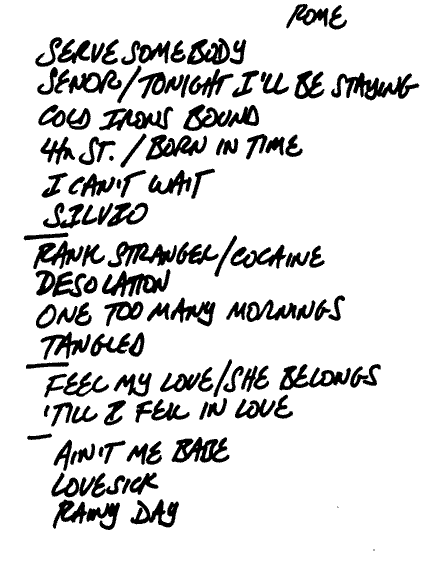 ROME
SERVE SOMEBODY
SENOR/TONIGHT I'LL BE STAYING
COLD IRONS BOUND
4th ST. / BORN IN TIME
I CAN'T WAIT
SILVIO
RANK STRANGER/COCAINE
DESOLATION
ONE TOO MANY MORNINGS
TANGLED
FEEL MY LOVE/SHE BELONGS
'TILL I FELL IN LOVE
AIN'T ME BABE
LOVESICK
RAINY DAY